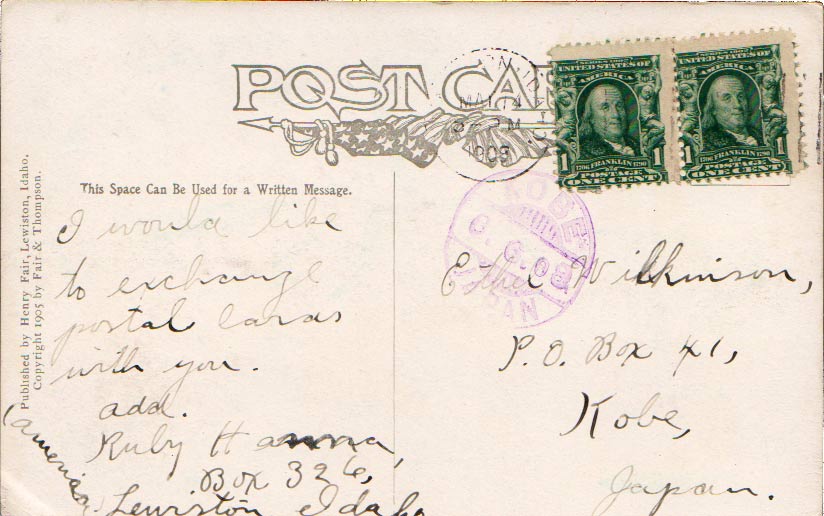 POST CA
SERIES 1902
UNITED STATES OF
AMERICA
1706 FRANKLIN 1790
1 1
POSTAGE
ONE CENT
SERIES 1902
UNITED STATES OF
AMERICA
1706 FRANKLIN 1790
1 1
POSTAGE
ONE CENT
14
M
KOBE
6.6.08
JAPAN
Published by Henry Fair, Lewiston, Idaho.
Copyright 1905 by Fair & Thompson.
This Space Can Be Used for a Written Message.
I would like
to exchange
postal cards
with you.
add.
Ruby Hanna,
Box 326,
Lewiston Idaho
(america)
Ethel Wilkinson,
P.O. Box 41,
Kobe,
Japan.